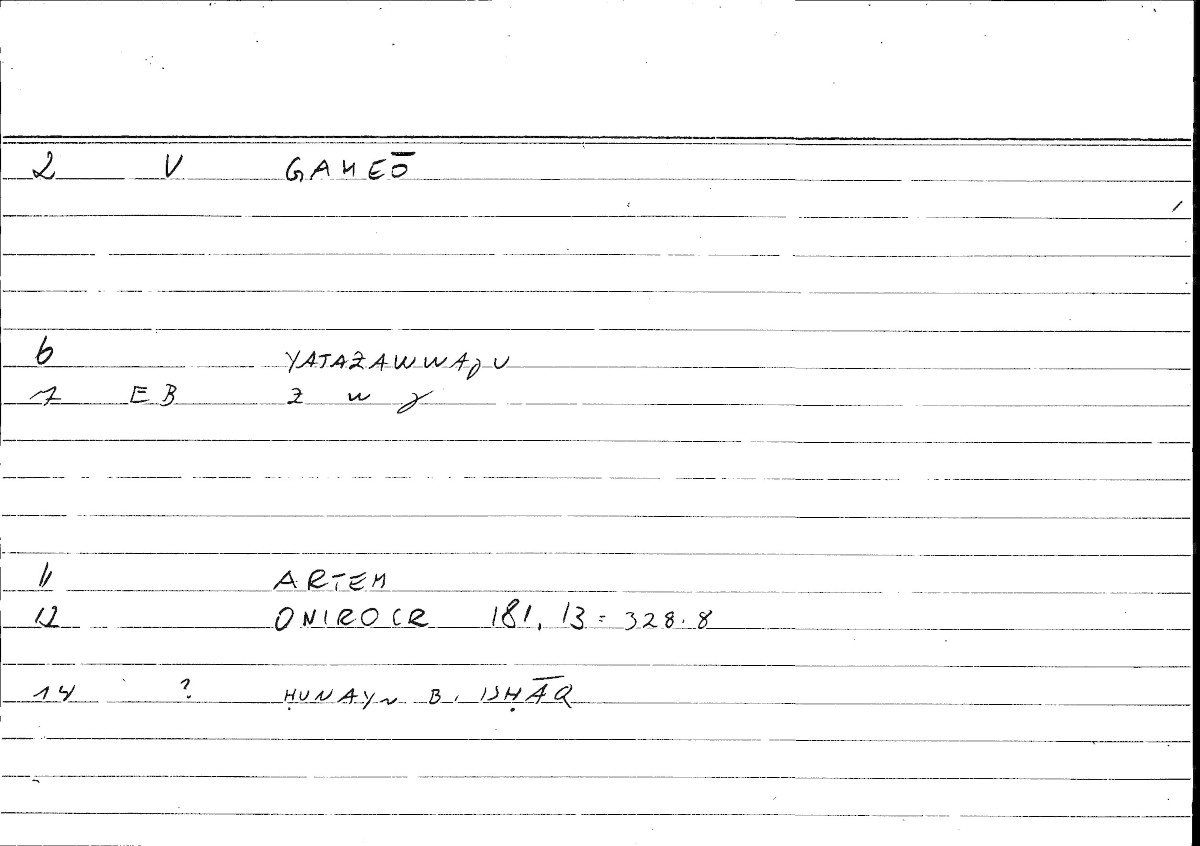 2 V GAMEŌ
6 YATAZAWWAJU
7 EB z w j
11 ARTEM
12 ONIROCR 181, 13 = 328.8
14 ? ḤUNAYN B. ISḤĀQ